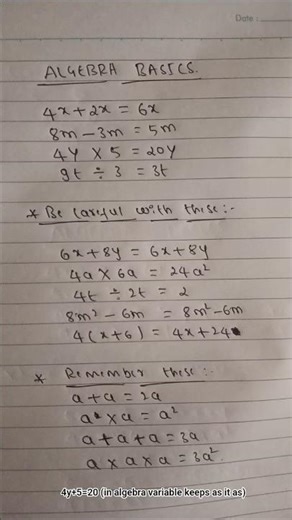 Date :
ALGEBRA BASICS.
4x + 2x = 6x
8m - 3m = 5m
4y × 5 = 20y
9t ÷ 3 = 3t
* Be careful with these :-
6x + 8y = 6x + 8y
4a × 6a = 24a²
4t ÷ 2t = 2
8m² - 6m = 8m² - 6m
4 ( x + 6 ) = 4x + 24
* Remember these :-
a + a = 2a
a × a = a²
a + a + a = 3a
a × a × a = 3a².
4y*5=20 (in algebra variable keeps as it as)